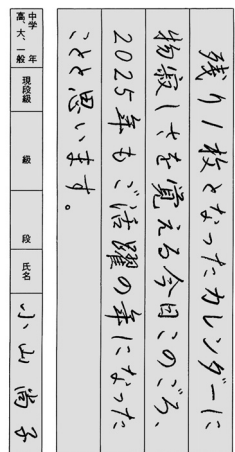 残り1枚となったカレンダーに
物寂しさを覚える今日このごろ、
2025年もご活躍の年になった
ことと思います。
中学 年
高、大、一般
現段級
級
段
氏名
小山尚子